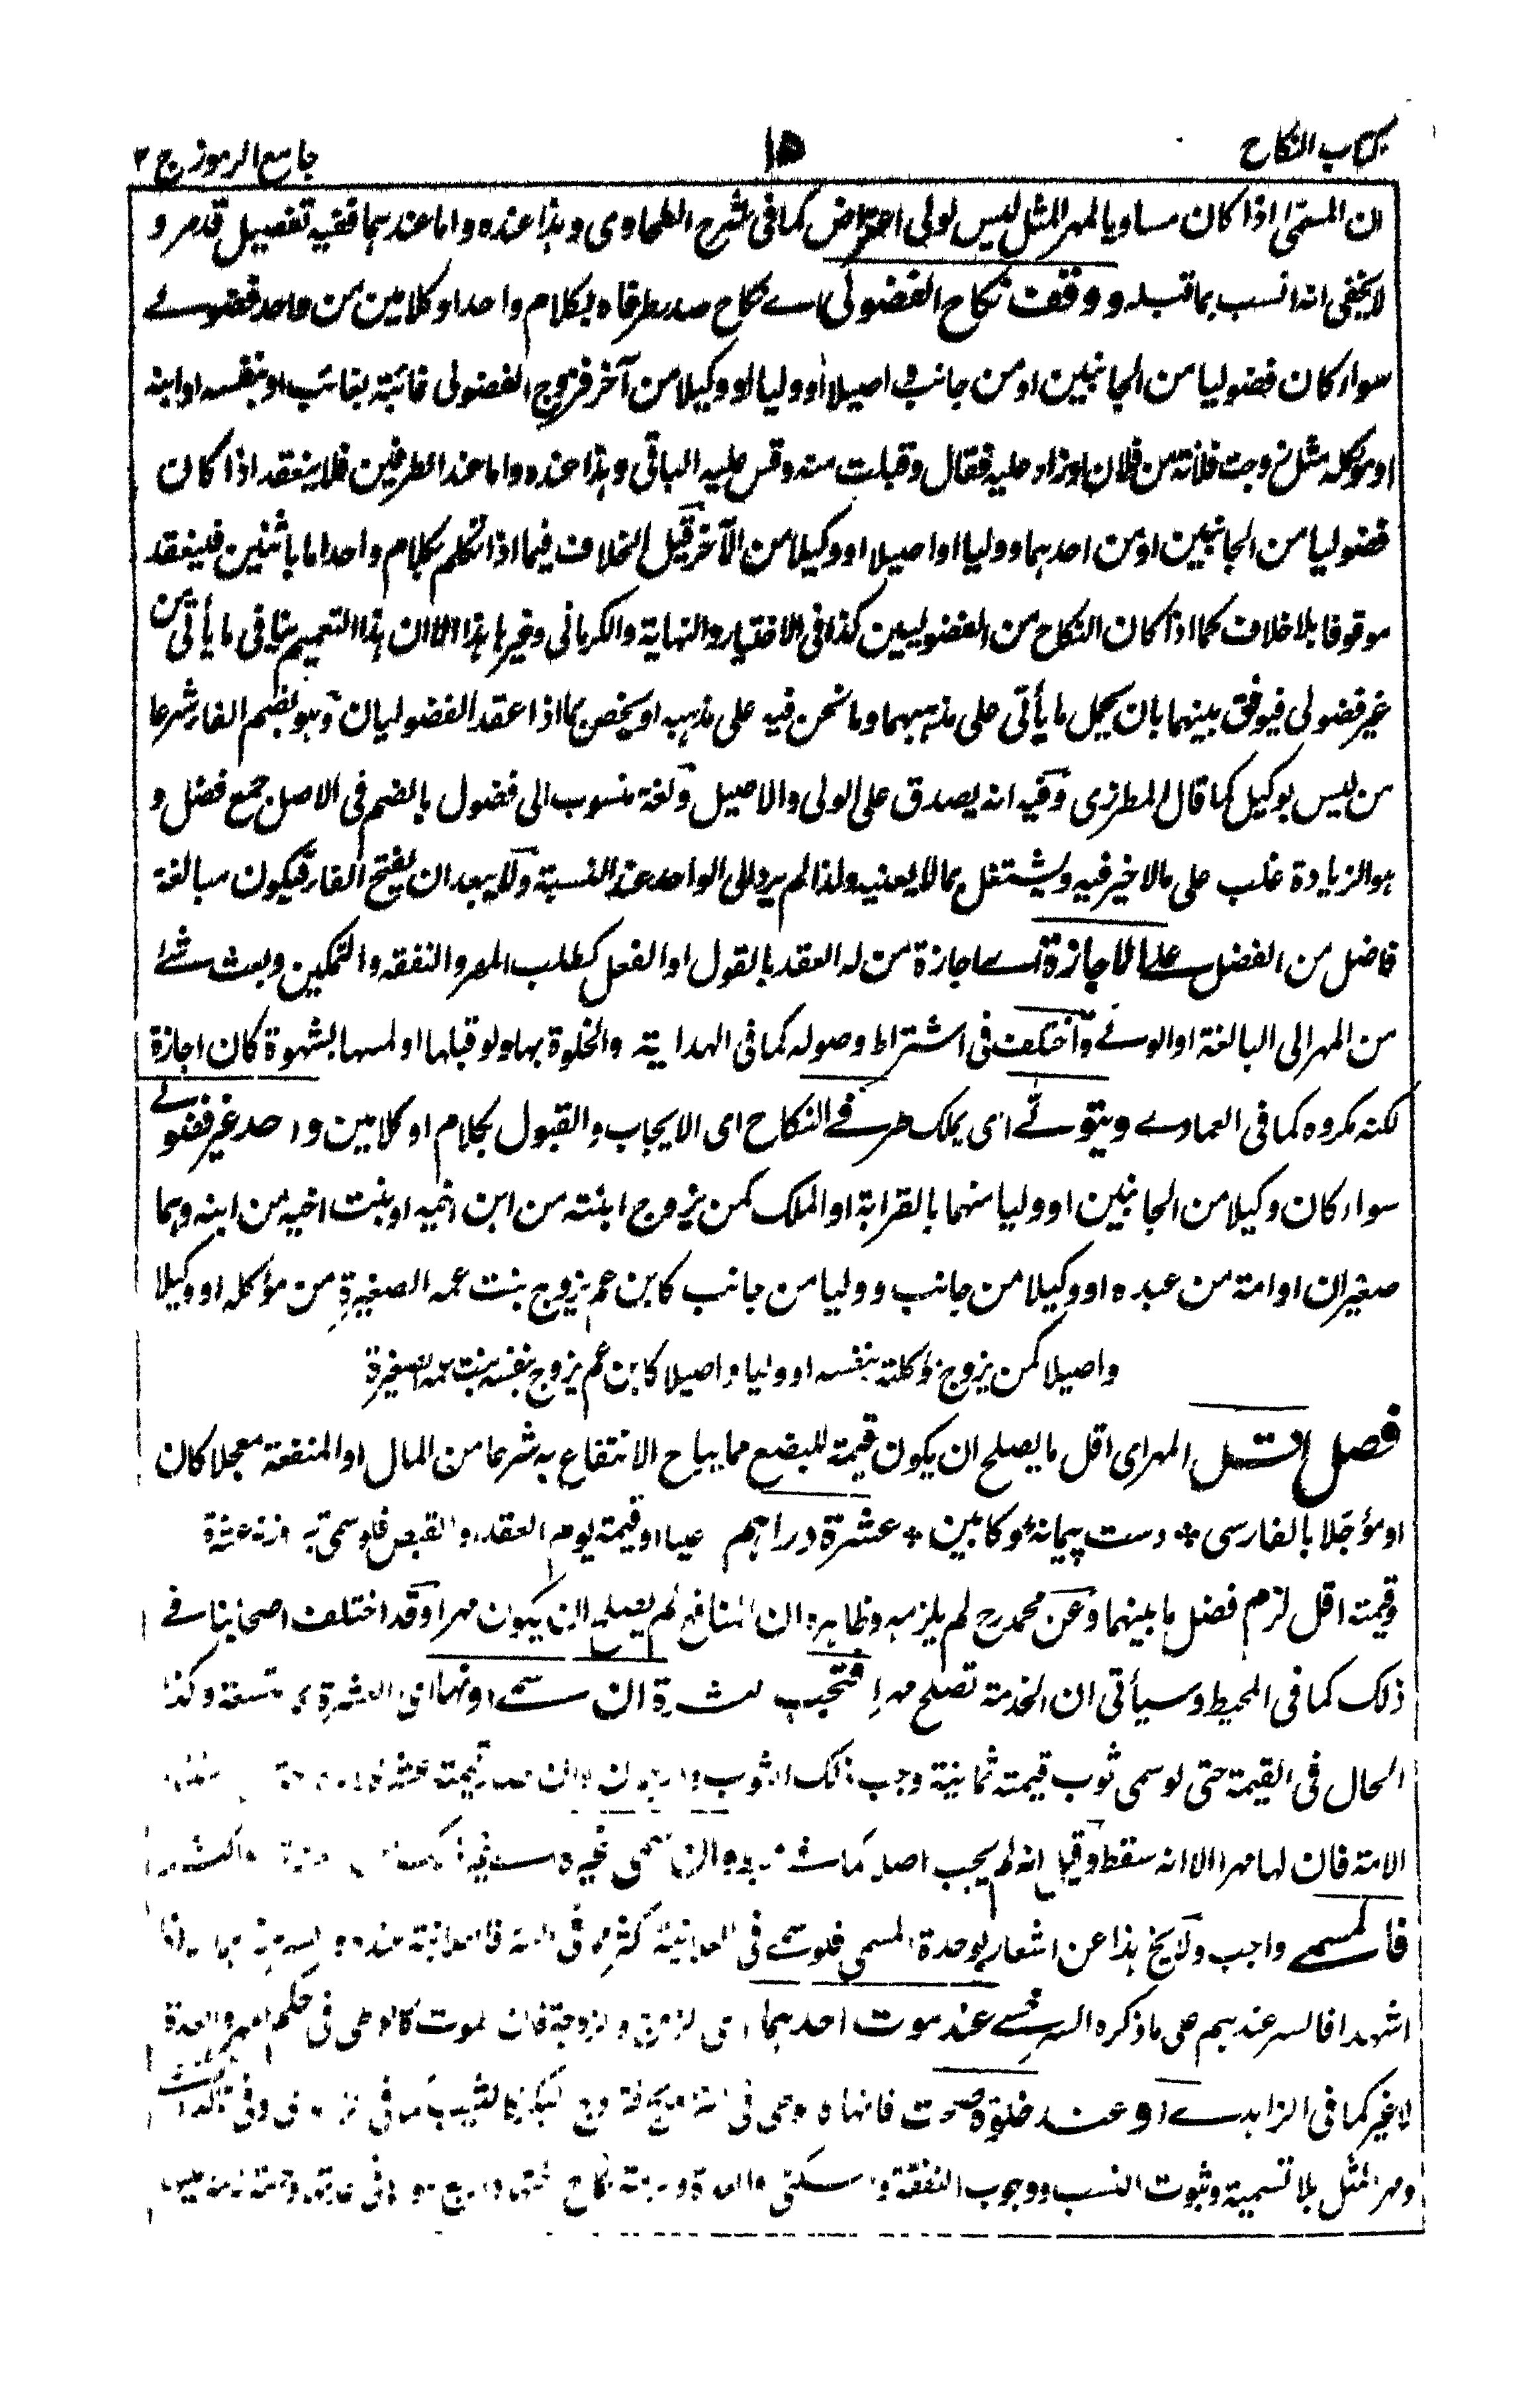 كتاب النكاح
١٥
جامع الرموز ج ٢
ان المسمى اذا كان مساويا لمهر المثل ليس لولى اعتراض كما فى شرح الطحاوى وهذا عنده واما عندهما ففيه تفصيل قد مر و
لا يخفى انه انسب بما قبله ووقف نكاح الفضولى اے نكاح صدر طرفاه بكلام واحد او كلامين من واحد فضولے
سواء كان فضوليا من الجانبين او من جانب و اصيلا او وليا او وكيلا من آخر فزوج الفضولى غائبة بغائب او بنفسه او ابنه
او موكله مثل زوجت فلانة من فلان او زاد عليه فقال وقبلت منه وقس عليه الباقى وهذا عنده واما عند الطرفين فلا ينعقد اذا كان
فضوليا من الجانبين او من احدهما ووليا او اصيلا او وكيلا من الآخر قيل الخلاف فيما اذا تكلم بكلام واحد اما باثنين فينعقد
موقوفا بلا خلاف كما اذا كان النكاح من الفضوليين كذا فى الاختيار والنهاية والكرمانى وغيرها هذا الا ان هذا التعميم ينافى ما يأتى من
غير فضولى فيوفق بينهما بان يحمل ما يأتى على مذهبهما وما نحن فيه على مذهبه او يخص بما اذا عقد الفضوليان وهو بضم الفاء شرعا
من ليس بوكيل كما قال المطرزى وفيه انه يصدق على الولى والاصيل ولغة منسوب الى فضول بالضم فى الاصل جمع فضل و
هو الزيادة غلب على مالا خير فيه ويشتغل بما لا يعنيه ولذا لم يرد الى الواحد عند النسبة ولا يبعد ان يفتح الفاء فيكون مبالغة
فاضل من الفضل على الاجازة اے اجازة من له العقد بالقول او الفعل كطلب المهر والنفقه والتمكين وبعث شئ
من المهر الى البالغة او الولے واختلف فى اشتراط وصوله كما فى الهداية والخلوة بها ولو قبلها او لمسها بشهوة كان اجازة
لكنه مكروه كما فى العمادے ويتولے اى يملك طرفے النكاح اى الايجاب والقبول بكلام او كلامين واحد غير فضولے
سواء كان وكيلا من الجانبين او وليا منهما بالقرابة او الملك كمن يزوج ابنته من ابن اخيه او بنت اخيه من ابنه وهما
صغيران او امة من عبده او وكيلا من جانب ووليا من جانب كابن عم يزوج بنت عمه الصغيرة من موكله او وكيلا
واصيلا كمن يزوج موكلته بنفسه او وليا واصيلا كابن عم يزوج بنفسه بنت عمه الصغيرة
فصل اقل المهر اى اقل ما يصلح ان يكون قيمة للبضع مما يباح الانتفاع به شرعا من المال او المنفعة معجلا كان
او مؤجلا بالفارسى * دست پيمانه و كابين * عشرة دراهم عينا او قيمة يوم العقد والقبض فلو سمى تبر وزنه عشرة
وقيمته اقل لزم فضل ما بينهما وعن محمد رح لم يلزمه وظاهره ان المنافع لم يصلح ان يكون مهرا وقد اختلف اصحابنا فے
ذلك كما فى المحيط وسيأتى ان الخدمة تصلح مهرا فتجب عشرة ان سمے دونها اى العشرة كتسعة وكذا
الحال فى القيمة حتى لو سمى ثوب قيمته ثمانية وجب ذلك الثوب ودرهمان وان قيمته عشرة
الامة فان لها مهرا الا انه سقط وقيل انه لم يجب اصلا وان سمى غيره
فالمسمے واجب ولا يخ هذا عن اشعار بوحدة المسمى فلو سمے فى العلانية اكثر مما فى السر فالعلانية عنده
اشهدا فالسر عندهم على ما ذكره السرخسے عند موت احدهما اى الزوج والزوجة فان الموت كالوطى فى حكم المهر والعدة
لا غير كما فى الزاهدے او عند خلوة صحت فانها
ومهر المثل بلا تسمية وثبوت النسب ووجوب النفقة والسكنى والعدة وحرمة نكاح اختها واربع سواها